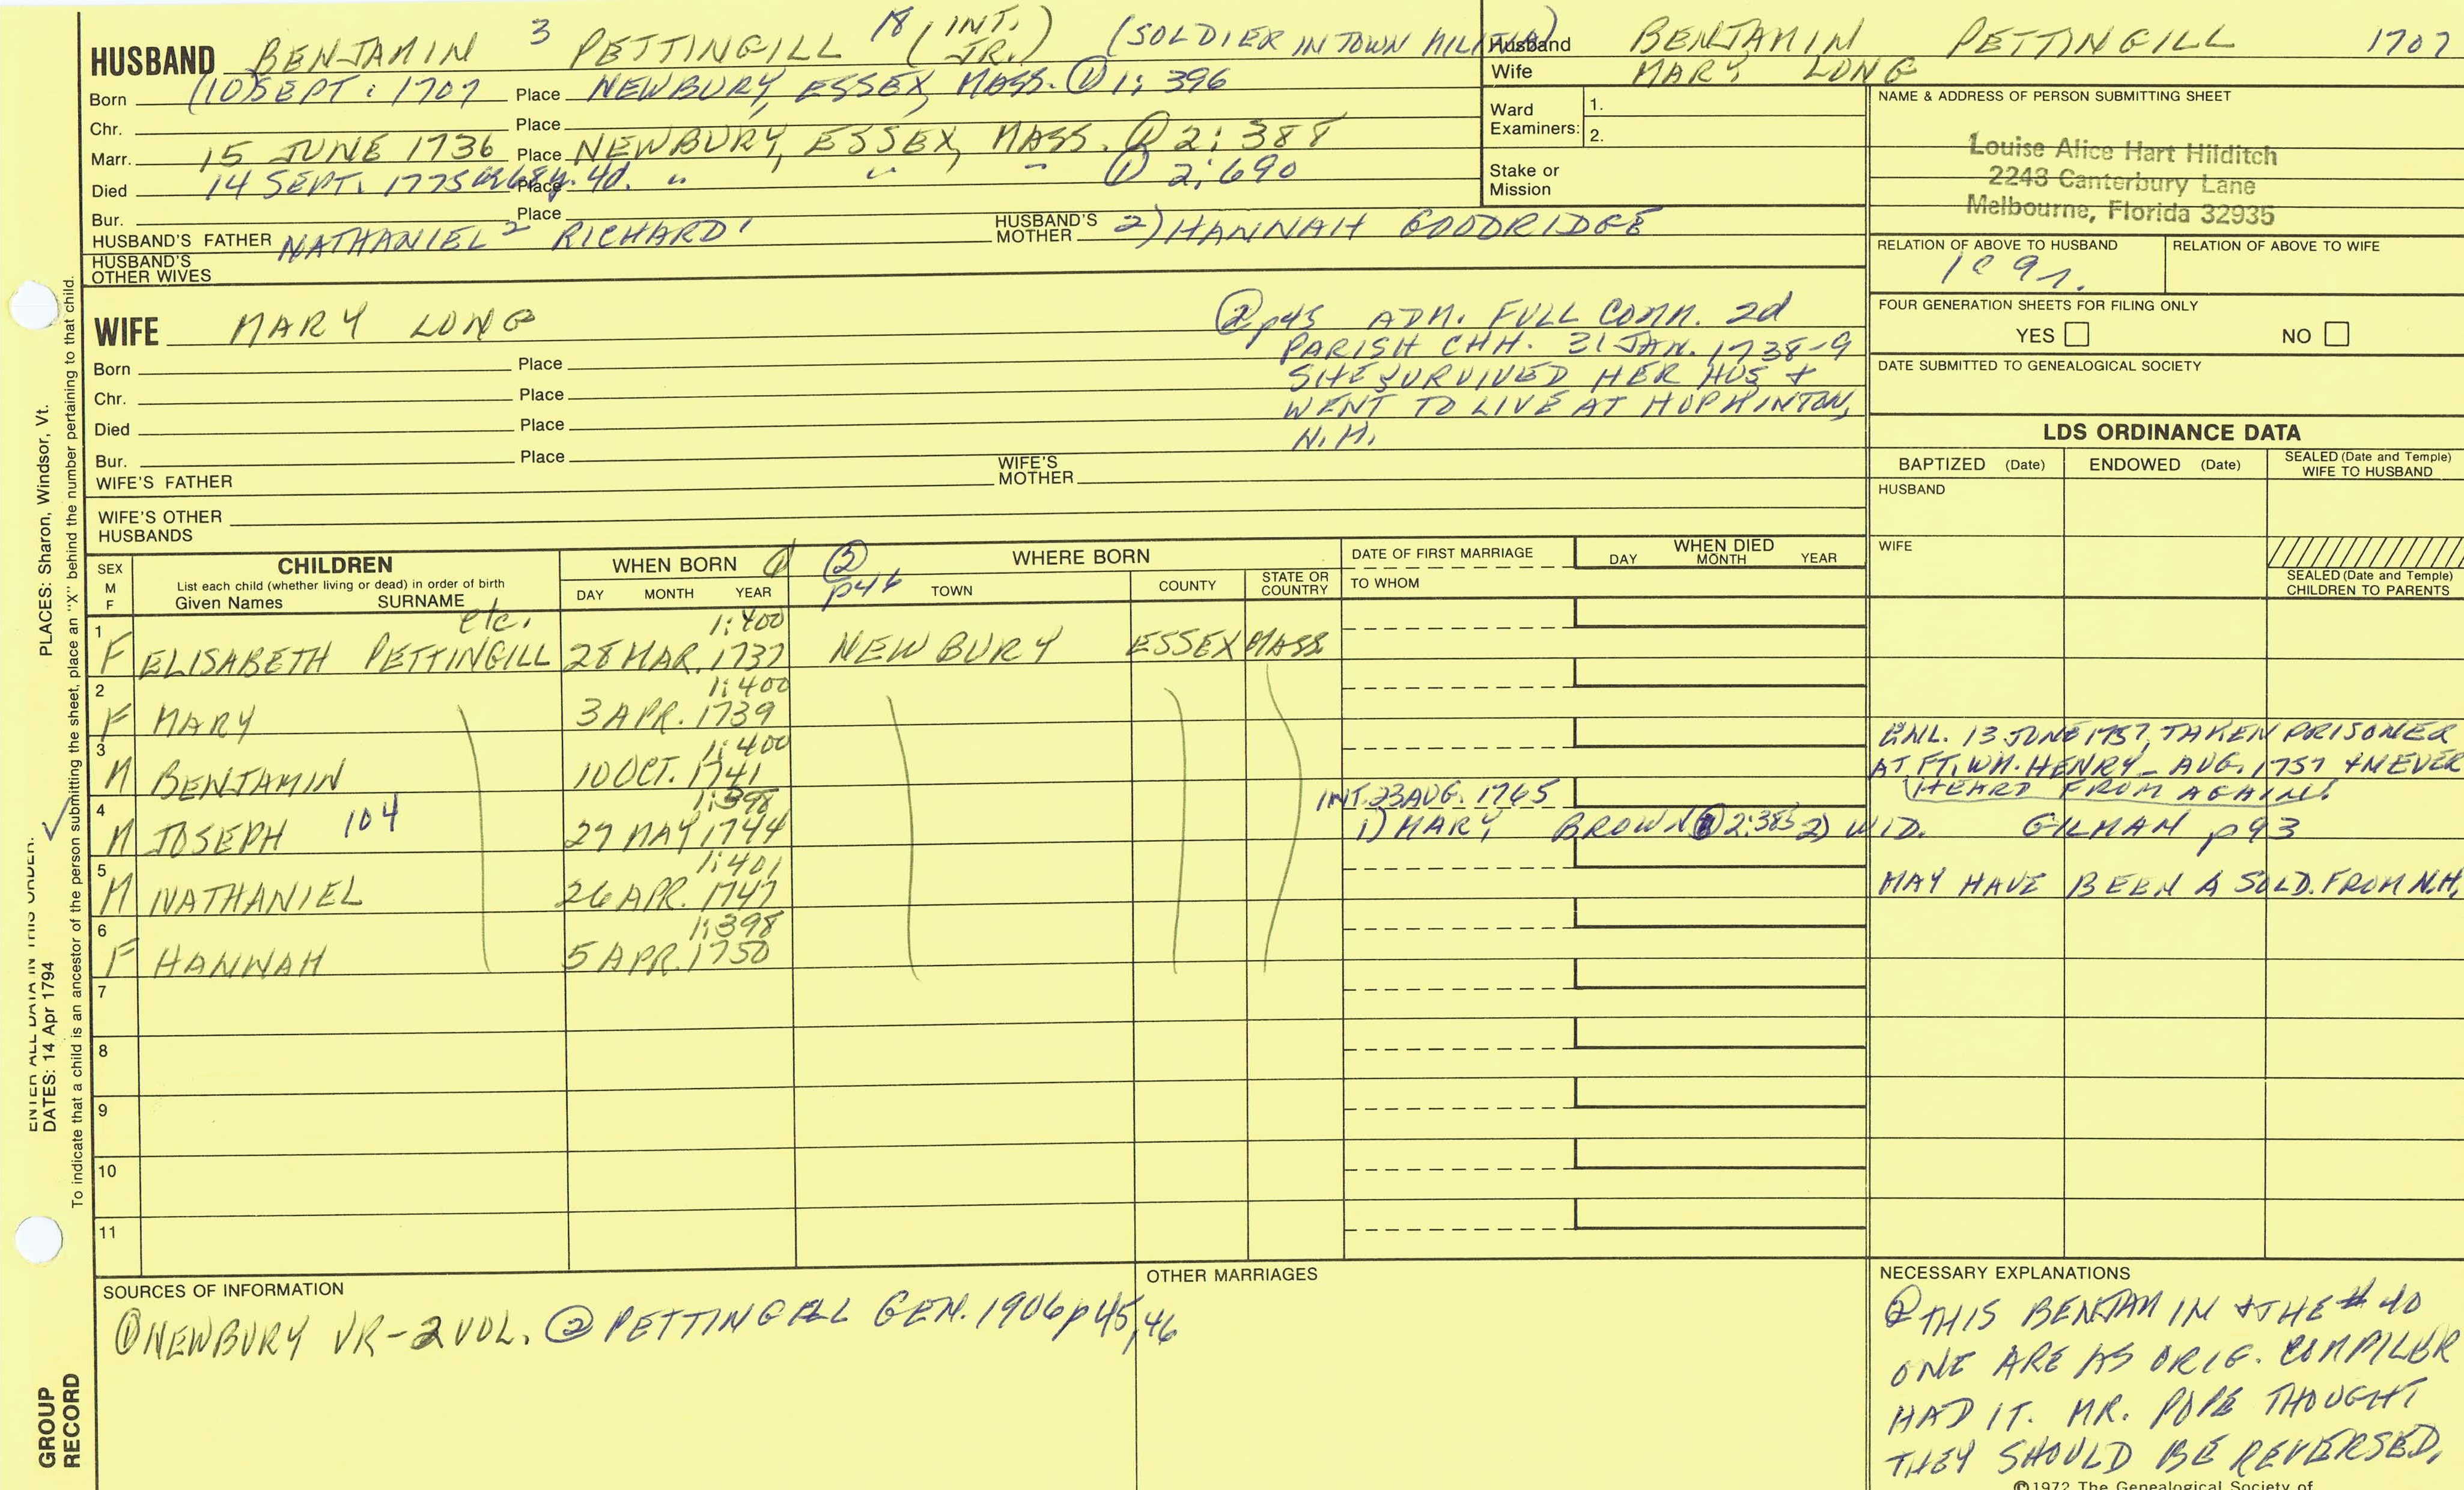 HUSBAND BENJAMIN 3 PETTINGILL 18 (INT. JR.) (SOLDIER IN TOWN MILITIA)
Born (10) SEPT. 1707 Place NEWBURY, ESSEX, MASS. ① 1:396
Chr. Place
Marr. 15 JUNE 1736 Place NEWBURY, ESSEX, MASS. ① 2:388
Died 14 SEPT. 1775 68y. 4d. Place " " " ① 2:690
Bur. Place
HUSBAND'S FATHER NATHANIEL 2 RICHARD 1 HUSBAND'S MOTHER 2) HANNAH GOODRIDGE
HUSBAND'S OTHER WIVES
Husband BENJAMIN PETTINGILL 1707
Wife MARY LONG
Ward Examiners: 1.
2.
Stake or Mission
NAME & ADDRESS OF PERSON SUBMITTING SHEET
Louise Alice Hart Hilditch
2243 Canterbury Lane
Melbourne, Florida 32935
RELATION OF ABOVE TO HUSBAND RELATION OF ABOVE TO WIFE
FOUR GENERATION SHEETS FOR FILING ONLY
YES NO
DATE SUBMITTED TO GENEALOGICAL SOCIETY
WIFE MARY LONG
② p45 ADM. FULL COMM. 2d
PARISH CHH. 31 JAN. 1738-9
SHE SURVIVED HER HUS &
WENT TO LIVE AT HOPKINTON,
N.H.
Born Place
Chr. Place
Died Place
Bur. Place
WIFE'S FATHER WIFE'S MOTHER
WIFE'S OTHER HUSBANDS
LDS ORDINANCE DATA
BAPTIZED (Date) ENDOWED (Date) SEALED (Date and Temple) WIFE TO HUSBAND
HUSBAND
WIFE
SEALED (Date and Temple) CHILDREN TO PARENTS
SEX M F CHILDREN WHEN BORN ① ② p46 WHERE BORN DATE OF FIRST MARRIAGE WHEN DIED
List each child (whether living or dead) in order of birth
Given Names SURNAME DAY MONTH YEAR TOWN COUNTY STATE OR COUNTRY TO WHOM DAY MONTH YEAR
etc. 1:400
1 F ELISABETH PETTINGILL 28 MAR. 1737 NEWBURY ESSEX MASS
1:400
2 F MARY 3 APR. 1739
1:400
3 M BENJAMIN 10 OCT. 1741
ENL. 13 JUNE 1757, TAKEN PRISONER
AT FT. WM. HENRY - AUG. 1757 & NEVER
HEARD FROM AGAIN.
1:398 INT. 23 AUG. 1765
4 M JOSEPH 104 27 MAY 1744 1) MARY BROWN ① 2:383 2) WID. GILMAN p93
1:401
5 M NATHANIEL 26 APR. 1747 MAY HAVE BEEN A SOLD. FROM N.H.
1:398
6 F HANNAH 5 APR. 1750
7
8
9
10
11
SOURCES OF INFORMATION
① NEWBURY VR - 2 VOL. ② PETTINGILL GEN. 1906 p 45, 46
OTHER MARRIAGES
NECESSARY EXPLANATIONS
② THIS BENJAMIN & THE # 40
ONE ARE AS ORIG. COMPILER
HAD IT. MR. POPE THOUGHT
THEY SHOULD BE REVERSED.
©1972 The Genealogical Society of
ENTER ALL DATA IN THIS ORDER:
DATES: 14 Apr 1794 PLACES: Sharon, Windsor, Vt.
To indicate that a child is an ancestor of the person submitting the sheet, place an "X" behind the number pertaining to that child.
GROUP
RECORD